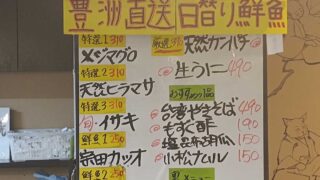 豊洲直送日替り鮮魚
特選1 310
メジマグロ
特選2 310
天然ヒラマサ
特選3 310
旬 イサキ
鮮魚1 250
宗田カツオ
鮮魚2 250
厳選 390 天然カンパチ
生うに 490
おすすめ一品
台湾やきそば 490
もずく酢 190
塩昆布胡瓜 150
小松ナムル 150